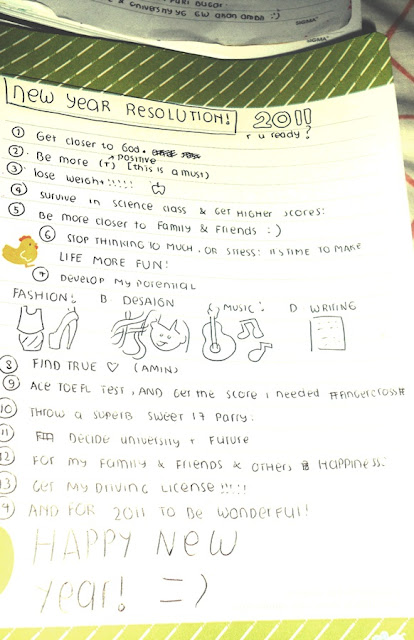 university
SIGMA
SIGMA
New Year Resolution! 2011
r u ready?
1 Get closer to God.
2. Be more (+) → positive [this is a must)
3. lose weight!!!!!
4 survive in science class & get HIGHer scores:
5 Be more closer to Family & Friends :)
6 STOP THINKING to MUCH, OR STRESS! ITS TIME TO MAKE
LIFE MORE FUN!
7 DEVELOP My POTENTIAL
FASHION! B DESAIGN C MUSIC! D WRITING
8 FIND TRUE ♡ (AMIN)
9 Ace TOEFL Test, AND Get the score i needed #FingerCross#
10 THrow a superB sweet 17 Party:
11 DeciDe university + Future
12 For my Family & Friends & others HAPPINESS:
13 Get My DRiving License!!!!!
AND FOR 2011 TO Be WonDerful!
HAPPY New
Year! =)